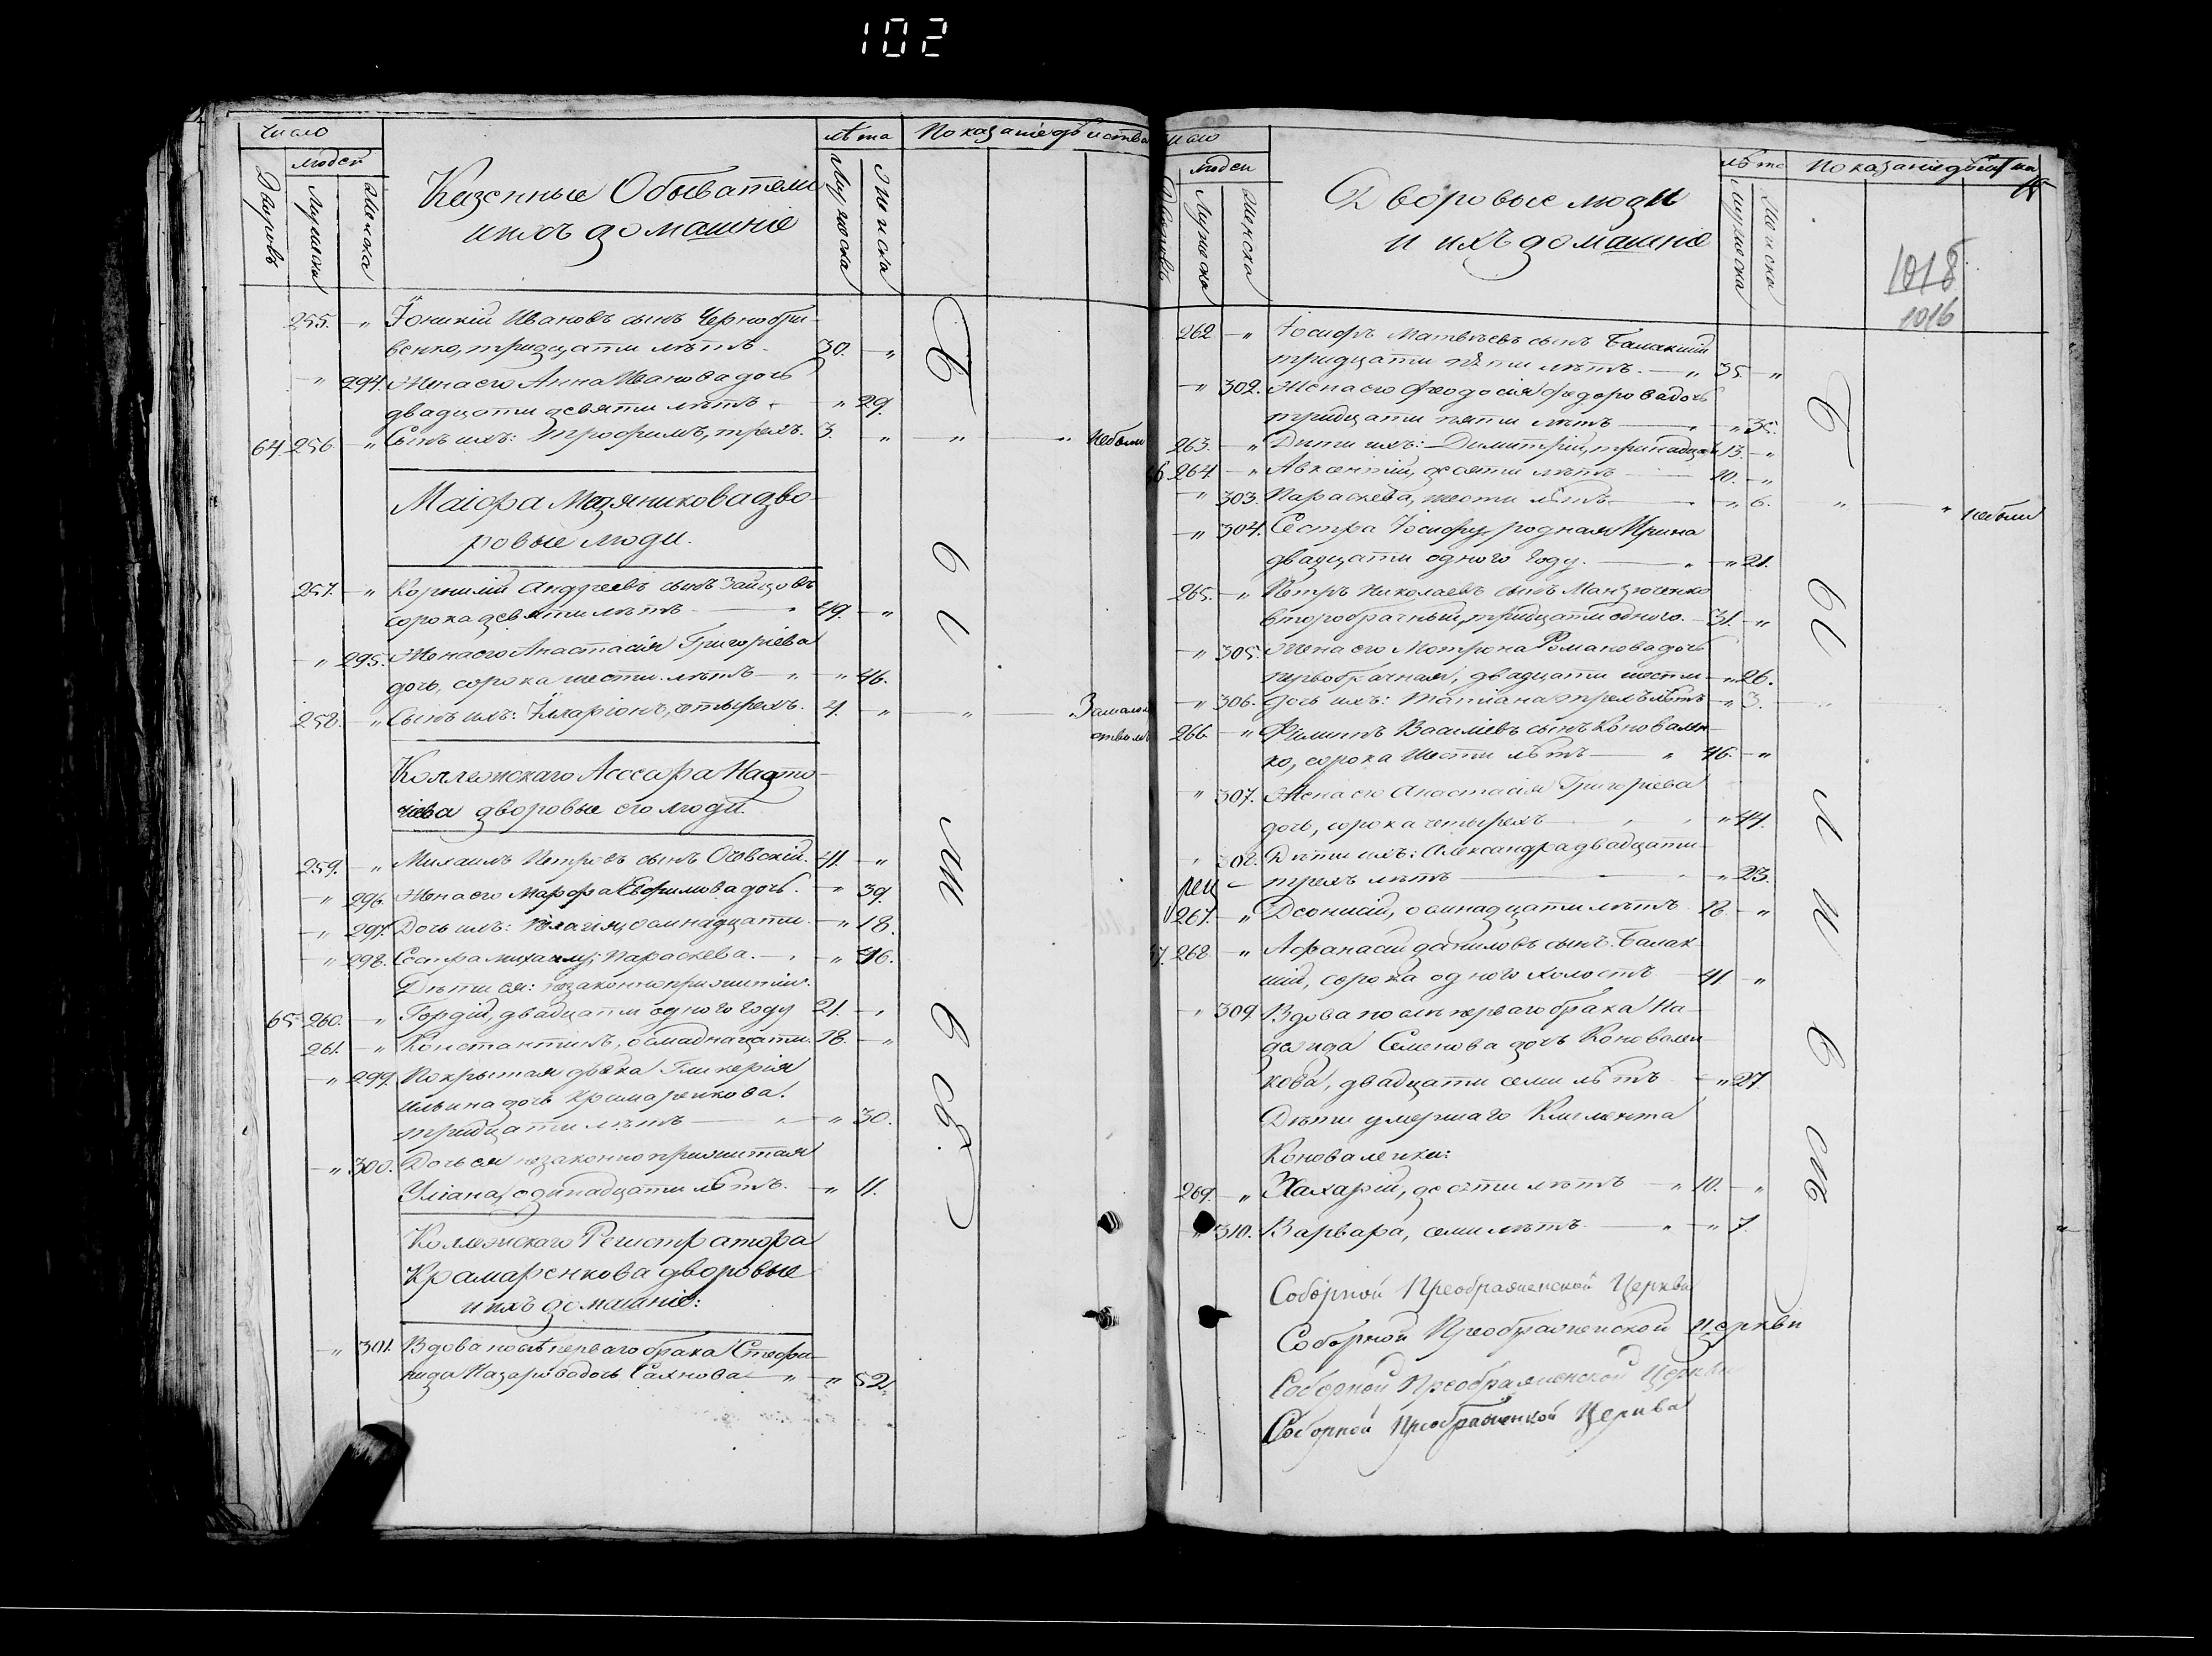 102
Число
людей
Дворовъ
Мужеска
Женска
Казенные Обыватели
и ихъ домашніе
лѣта
Мужеска
Женска
Показаніе дѣйства
255. — „ Іоникій Ивановъ сынъ Чернобри-
венко, тридцати лѣтъ 30. — „
— „ 294. Жена его Анна Иванова дочь
двадцати девяти лѣтъ — „ 29.
64. 256. — „ Сынъ ихъ: Трофимъ, трехъ. 3. — „ „ „ небыли
Маіора Медяникова дво-
ровые люди.
257. — „ Корнилій Андреевъ сынъ Зайцовъ
сорока девяти лѣтъ — 49. — „
— „ 295. Жена его Анастасія Григоріева
дочь, сорока шести лѣтъ — „ — „ 46.
258. — „ Сынъ ихъ: Иларіонъ, четырехъ. 4. — „ — „ За малол
ствомъ
Коллежскаго Ассесара
дворовые его люди.
259. — „ Михаилъ Петровъ сынъ 41. — „
— „ 296. Жена его Марфа Евфимова дочь. — „ 39.
— „ 297. Дочь ихъ: Пелагія, осмнадцати. — „ 18.
— „ 298. Сестра Михаилу: Параскева. — „ 46.
Дѣти ея: незаконноприжитыя:
65. 260. — „ Гордій, двадцати одного году 21. — „
261. — „ Константинъ, осмнадцати. 18. — „
— „ 299. Покрытая дѣвка Гликерія
Ильина дочь Крамаренкова.
тридцати лѣтъ — „ — „ 30.
— „ 300. Дочь ея незаконно прижитая
Уліана, одинадцати лѣтъ. — „ 11.
Коллежскаго Регистратора
Крамаренкова дворовые
и ихъ домашніе:
— „ 301. Вдова послѣ перваго брака Стефа-
нида Назарова дочь Саянова — „ — „ 52.
Былиувсѣ.
число
людей
Дворовъ
Мужеска
Женска
Дворовые люди
и ихъ домашніе
лѣта
Мужеска
Женска
Показаніе дѣйства
1018
1016
262. — „ Іосифъ Матвѣевъ сынъ Балакшій
тридцати пяти лѣтъ. — „ 35. — „
— „ 302. Жена его Феодосія Федорова дочь
тридцати пяти лѣтъ — „ 35.
263. — „ Дѣти ихъ: Димитрій, тринадцати 13. — „
66. 264. — „ Авксентій, десяти лѣтъ — 10. — „
— „ 303. Параскева, шести лѣтъ — „ 6. „ „ небыли
— „ 304. Сестра Іосифу родная Ирина
двадцати одного году. — „ — „ 21.
265. — „ Петръ Николаевъ сынъ Манзюченко
второбрачный, тридцати одного. — 31. — „
— „ 305. Жена его Мотрона Романова дочь
первобрачная, двадцати шести — „ 26.
— „ 306. Дочь ихъ: Татіана трехъ лѣтъ — „ 3.
266. — „ Филиппъ Василіевъ сынъ Коновален-
ко, сорока шести лѣтъ — „ 46. — „
— „ 307. Жена его Анастасія Григоріева
дочь, сорока четырехъ — „ 44.
„ 308. Дѣти ихъ: Александра двадцати
трехъ лѣтъ — „ 23.
267. — „ Діонисій, осмнадцати лѣтъ 18. — „
67. 268. — „ Афанасій Даниловъ сынъ Балак-
шій, сорока одного холостъ — 41 — „
— „ 309. Вдова послѣ перваго брака На-
дежда Семенова дочь Коновален-
кова, двадцати семи лѣтъ — „ 27
Дѣти умершаго Климента
Коноваленки:
269. — „ Захарій, десяти лѣтъ — „ 10. — „
„ 310. Варвара, семи лѣтъ — „ — „ 7.
Былиувсѣ
Соборной Преображенской Церкви
Соборной Преображенской церкви
Соборной Преображенской Церкви
Соборной Преображенской Церкви